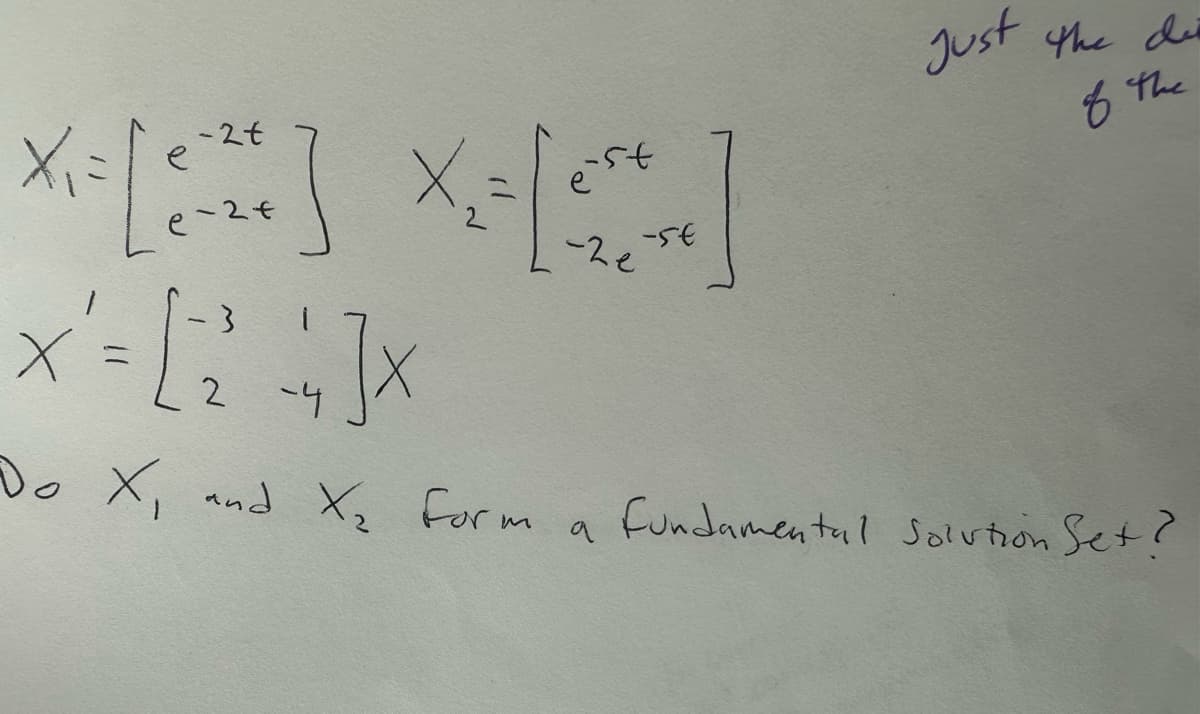 Just the
of the
X₁ = [ e^-2t ] X₂ = [ e^-5t ]
[ e^-2t ] [ -2e^-5t ]
X' = [ -3 1 ] X
[ 2 -4 ]
Do X₁ and X₂ form a fundamental solution Set?